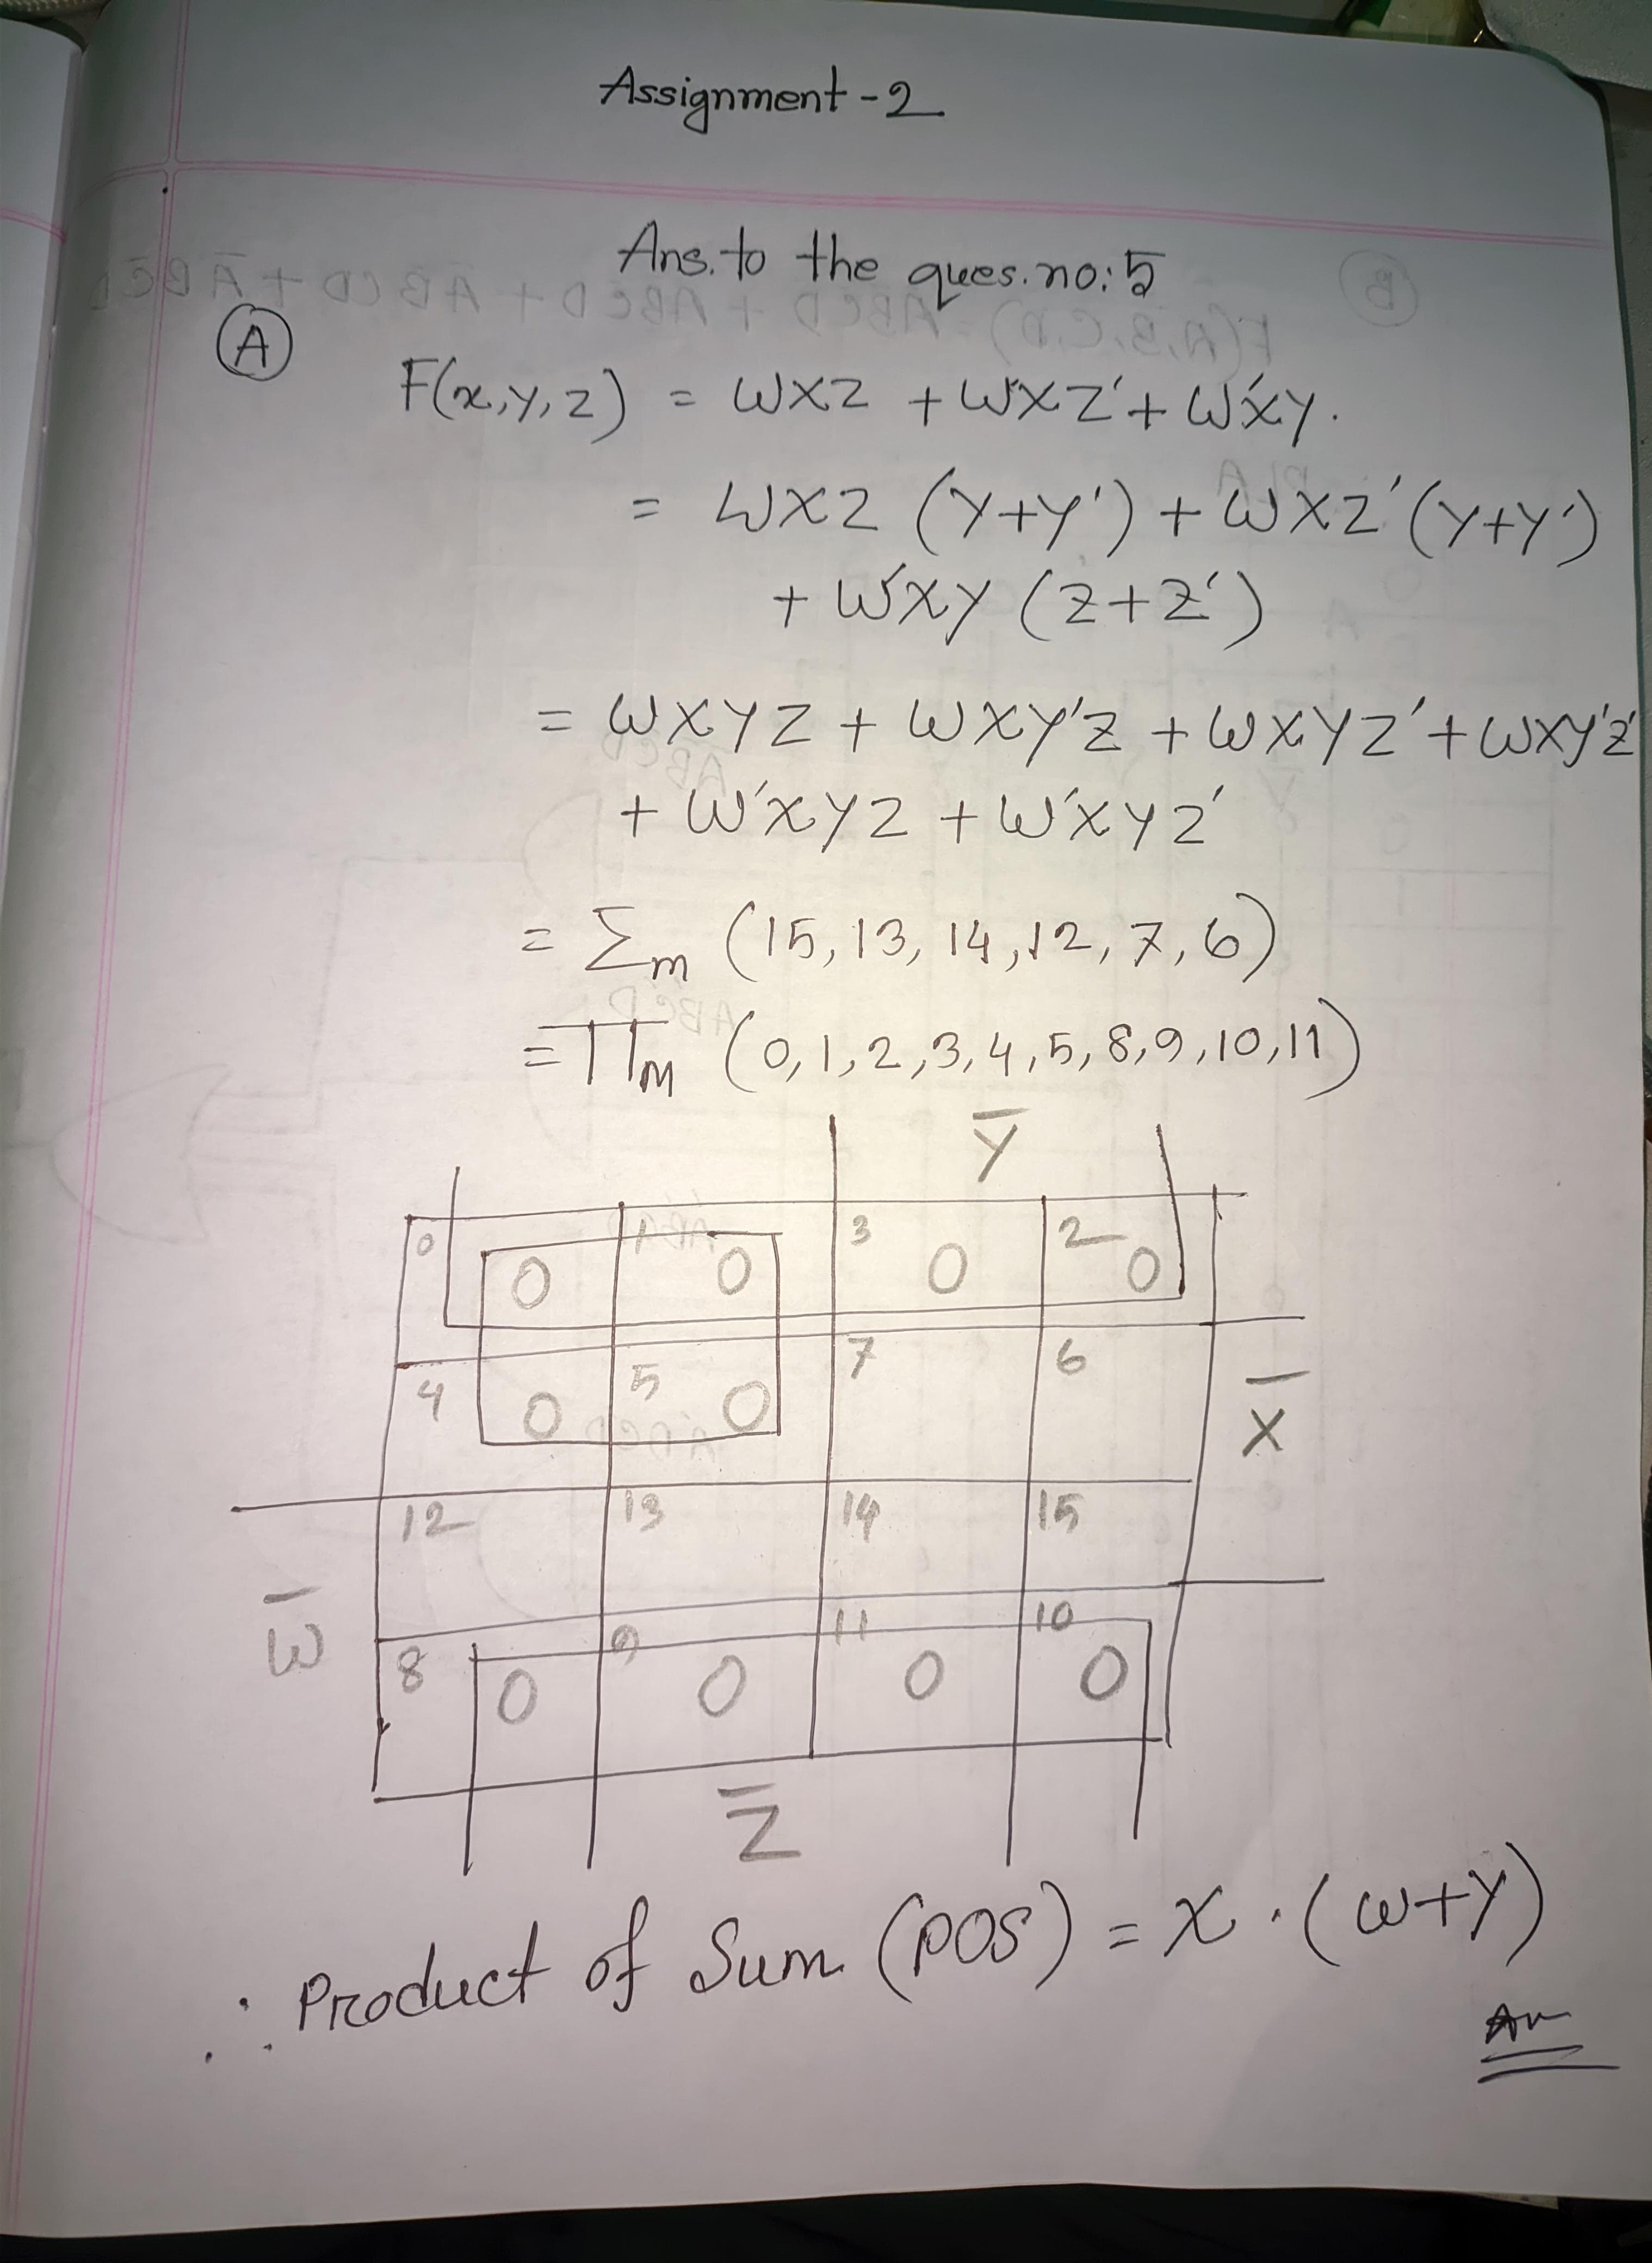 Assignment-2
Ans. to the ques. no: 5
A
F(x,y,z) = WXZ + WXZ' + W'XY.
= WXZ (Y+Y') + WXZ' (Y+Y')
+ W'XY (Z+Z')
= WXYZ + WXY'Z + WXYZ' + WXY'Z'
+ W'XYZ + W'XYZ'
= Σm (15, 13, 14, 12, 7, 6)
= ΠM (0, 1, 2, 3, 4, 5, 8, 9, 10, 11)
Y̅
0 1 3 2
0 0 0 0
4 5 7 6
0 0
X̅
12 13 14 15
W̅
8 9 11 10
0 0 0 0
Z̅
∴ Product of Sum (POS) = X · (W+Y)